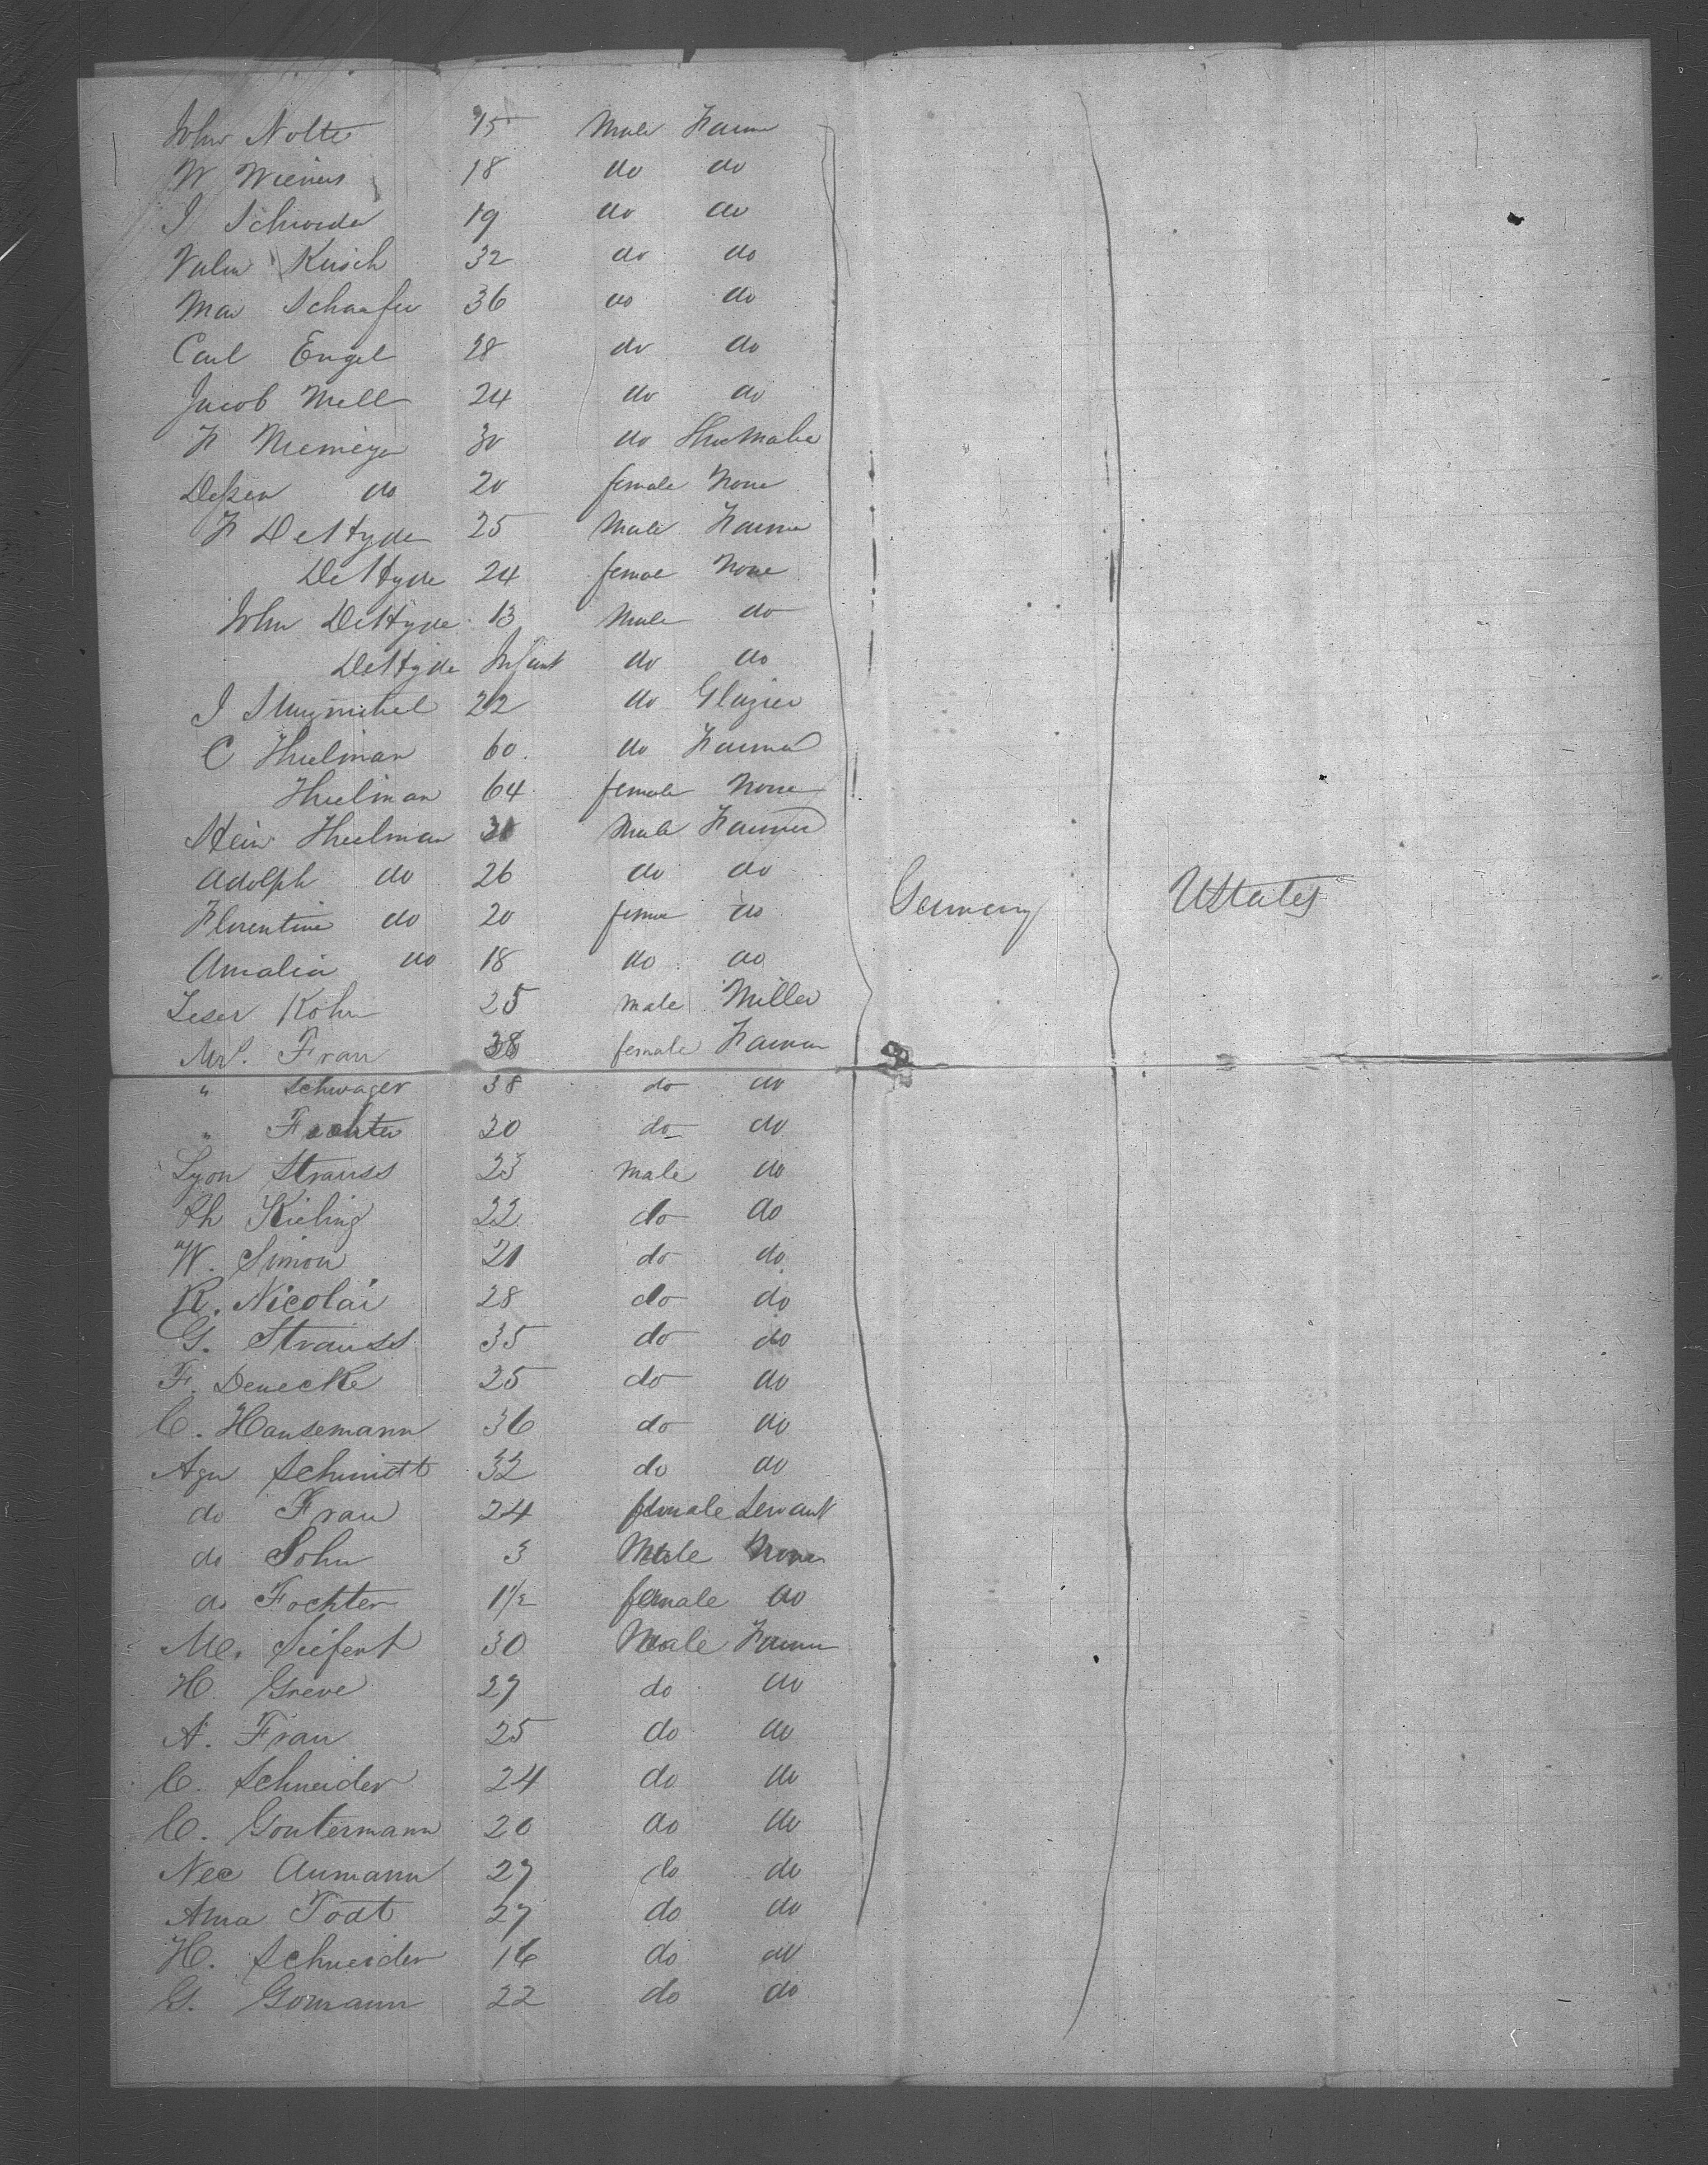 John Nolte 15 Male Farmer
W Wieners 18 do do
J Schroeder 19 do do
Kirsch 32 do do
Schaafer 36 do do
Carl Engel 28 do do
Jacob Mell 24 do do
F Niemeyer 30 do Shoemaker
do 20 female None
F DeHyde 25 Male Farmer
DeHyde 24 female None
John DeHyde 13 Male do
DeHyde Infant do do
J 22 do Glazier
C Thielman 60 do Farmer
Thielman 64 female None
Hein Thielman Male Farmer
Adolph do 26 do do
Florentine do 20 female do Germany UStates
Amalia do 18 do do
Leser Kohn 25 male Miller
Mrs. Frau 38 female Farmer
" Schwager 38 do do
" Tochter 30 do do
Lyon Strauss 23 male do
Ph Kieling 22 do do
W. Simon 21 do do
R. Nicolai 28 do do
G. Strauss 35 do do
F. Denecke 25 do do
C. Hansemann 36 do do
Agu Schmidt 32 do do
do Frau 24 female Servant
do Sohn 3 Male None
do Tochter 1 1/2 female do
M. Siefert 30 Male Farmer
H. Greve 27 do do
A. Frau 25 do do
C. Schneider 24 do do
C. Gontermann 20 do do
Nec Aumann 27 do do
Ama Todt 27 do do
H. Schneider 16 do do
G. Gomann 22 do do